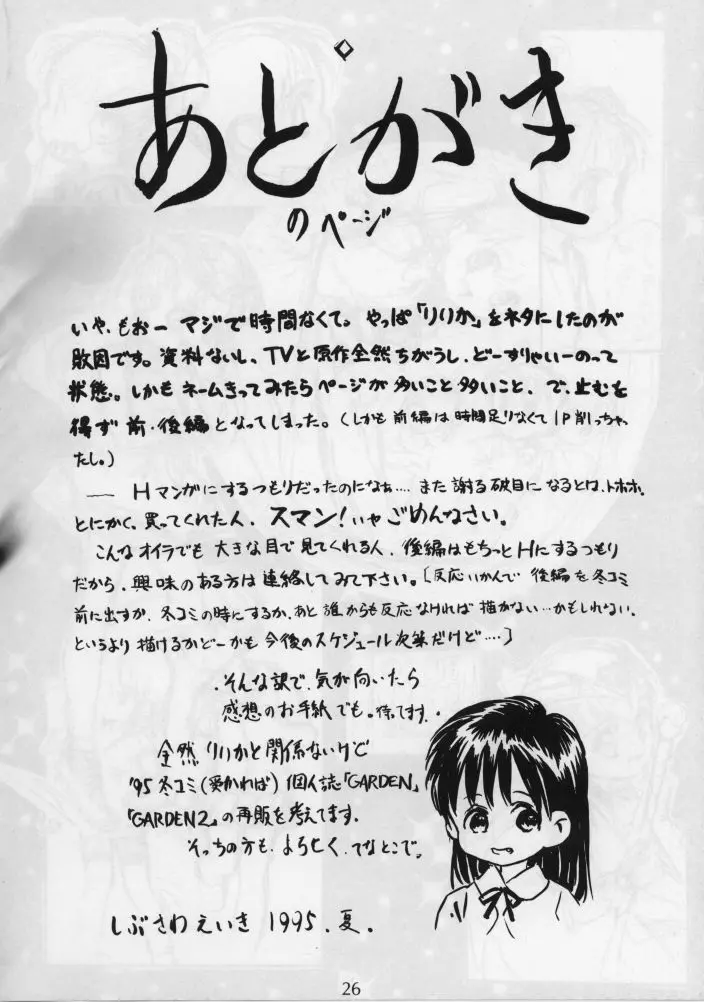 あとがき
のページ
いや、もおー マジで時間なくて。やっぱ「りりか」をネタにしたのが
敗因です。資料ないし、TVと原作全然ちがうし、どーすりゃいーのって
状態。しかもネームきってみたらページが多いこと多いこと、で、止むを
得ず前・後編となってしまった。(しかも前編は時間足りなくて1P削っちゃっ
たし。)
―― Hマンガにするつもりだったのになぁ…. また謝る破目になるとは、トホホ.
とにかく、買ってくれた人、スマン!いやごめんなさい。
こんなオイラでも大きな目で見てくれる人、後編はもちっとHにするつもり
だから、興味のある方は連絡してみて下さい。[反応いかんで後編を冬コミ
前に出すか、冬コミの時にするか、あと誰からも反応なければ描かない…かもしれない.
というより描けるかどーかも今後のスケジュール次第だけど….]
.そんな訳で、気が向いたら
感想のお手紙でも。待ってます..
全然りりかと関係ないけど
'95冬コミ(受かれば)個人誌「GARDEN」
「GARDEN2」の再販を考えてます.
そっちの方も、よろしく、てなとこで。
しぶさわえいき 1995.夏.
26